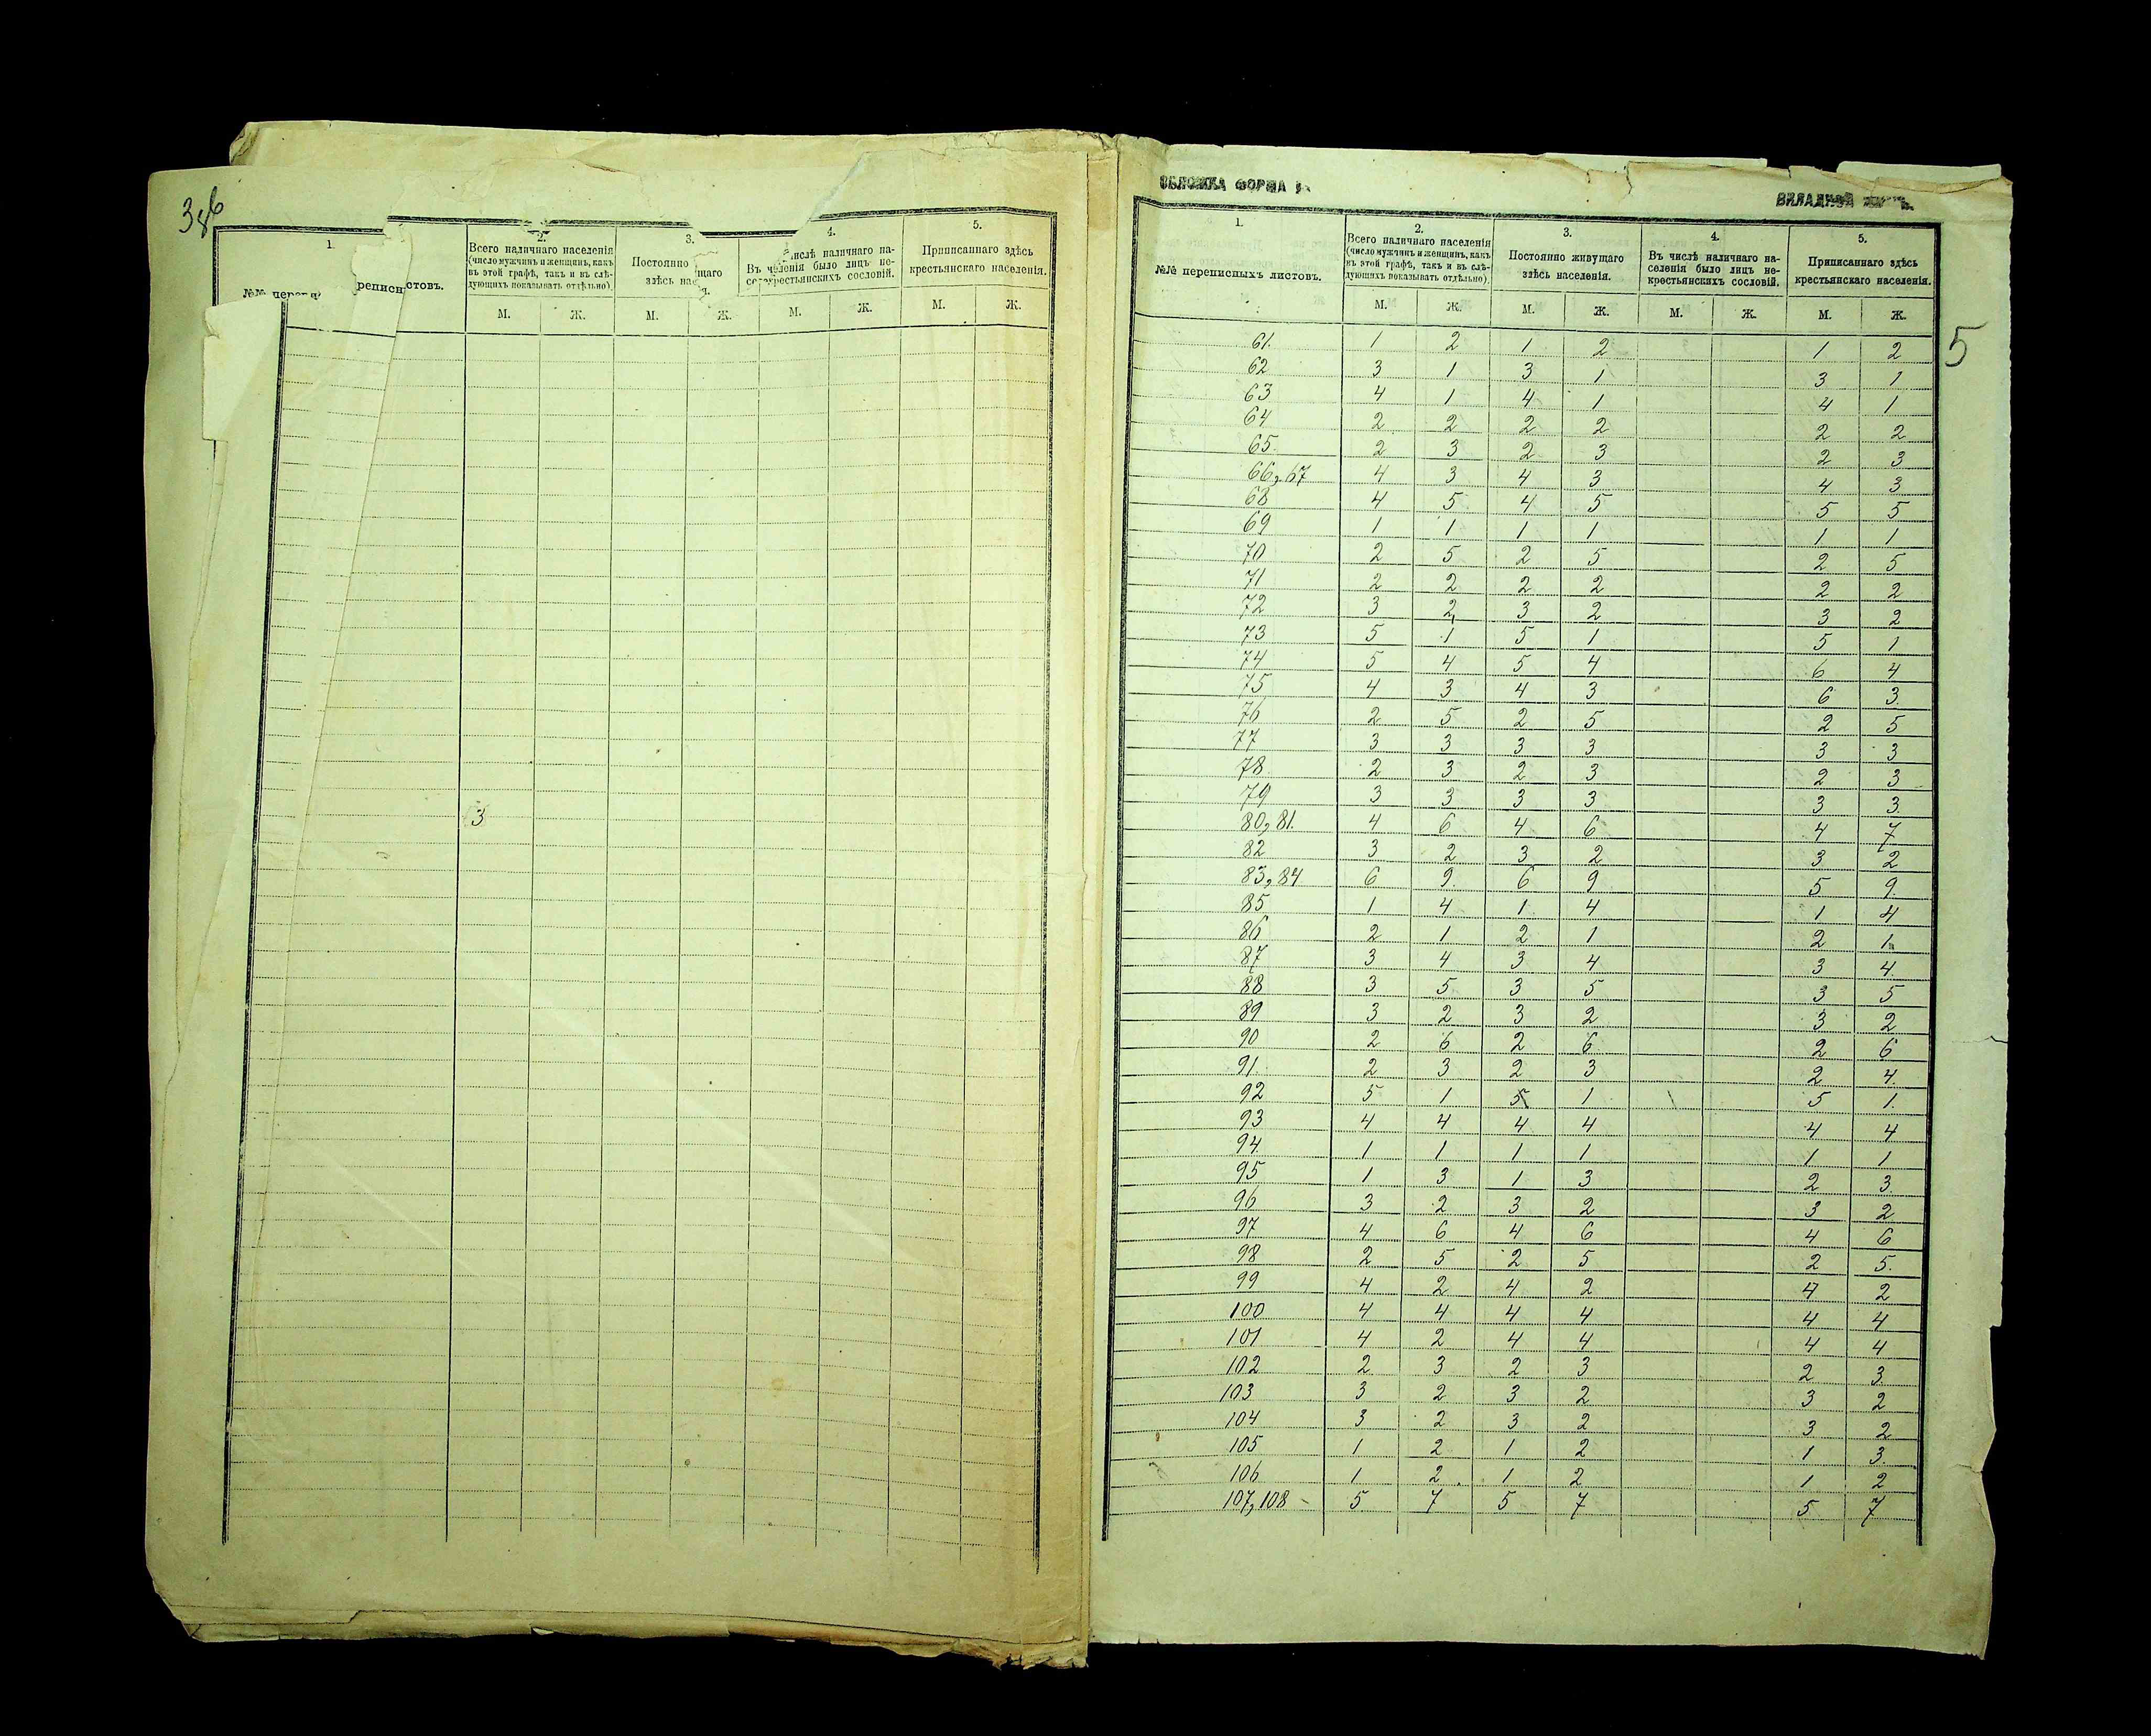 386
1.
2.
3.
4.
5.
Всего наличнаго населенія
(число мужчинъ и женщинъ, какъ
въ этой графѣ, такъ и въ слѣ-
дующихъ показывать отдѣльно).
Постоянно
щаго
здѣсь
Въ
числѣ наличнаго на-
селенія было лицъ не-
крестьянскихъ сословій.
Приписаннаго здѣсь
крестьянскаго населенія.
№№
реписн
стовъ.
М. Ж. М. Ж. М. Ж. М. Ж.
3
ОБЛОЖКА ФОРМА
ВКЛАДНОЙ
5
1.
2.
3.
4.
5.
№№ переписныхъ листовъ.
Всего наличнаго населенія
(число мужчинъ и женщинъ, какъ
въ этой графѣ, такъ и въ слѣ-
дующихъ показывать отдѣльно).
Постоянно живущаго
здѣсь населенія.
Въ числѣ наличнаго на-
селенія было лицъ не-
крестьянскихъ сословій.
Приписаннаго здѣсь
крестьянскаго населенія.
М. Ж. М. Ж. М. Ж. М. Ж.
61. 1 2 1 2 1 2
62 3 1 3 1 3 1
63 4 1 4 1 4 1
64 2 2 2 2 2 2
65. 2 3 2 3 2 3
66, 67 4 3 4 3 4 3
68 4 5 4 5 5 5
69 1 1 1 1 1 1
70 2 5 2 5 2 5
71 2 2 2 2 2 2
72 3 2 3 2 3 2
73 5 1 5 1 5 1
74 5 4 5 4 6 4
75 4 3 4 3 6 3
76 2 5 2 5 2 5
77 3 3 3 3 3 3
78 2 3 2 3 2 3
79 3 3 3 3 3 3
80, 81. 4 6 4 6 4 7
82 3 2 3 2 3 2
83, 84 6 9 6 9 5 9
85 1 4 1 4 1 4
86 2 1 2 1 2 1
87 3 4 3 4 3 4
88 3 5 3 5 3 5
89 3 2 3 2 3 2
90 2 6 2 6 2 6
91. 2 3 2 3 2 4
92 5 1 5 1 5 1
93 4 4 4 4 4 4
94. 1 1 1 1 1 1
95 1 3 1 3 2 3
96 3 2 3 2 3 2
97 4 6 4 6 4 6
98 2 5 2 5 2 5
99 4 2 4 2 4 2
100 4 4 4 4 4 4
101 4 2 4 4 4 4
102 2 3 2 3 2 3
103 3 2 3 2 3 2
104 3 2 3 2 3 2
105 1 2 1 2 1 3
106 1 2 1 2 1 2
107, 108 5 7 5 7 5 7